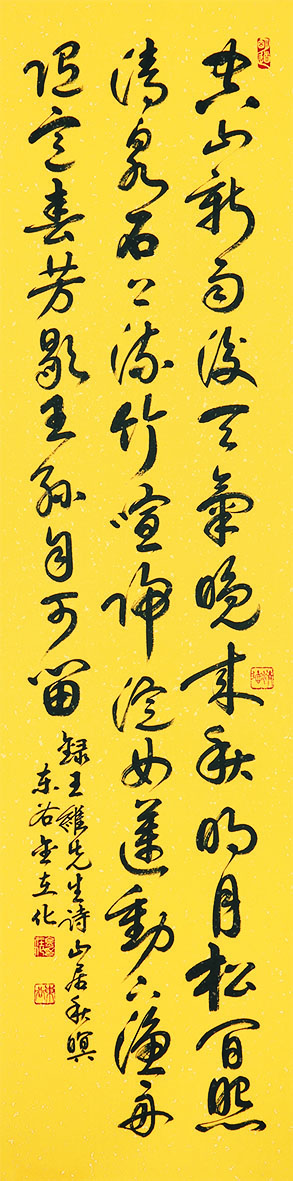 空山新雨後天氣晚來秋明月松间照
清泉石上流竹喧归浣女蓮動下漁舟
随意春芳歇王孫自可留
録王維先生诗山居秋暝
立化